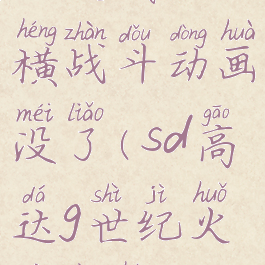 héng zhàn dǒu dòng huà
横战斗动画
méi liǎo gāo
没了(sd高
dá shì jì huǒ
达9世纪火